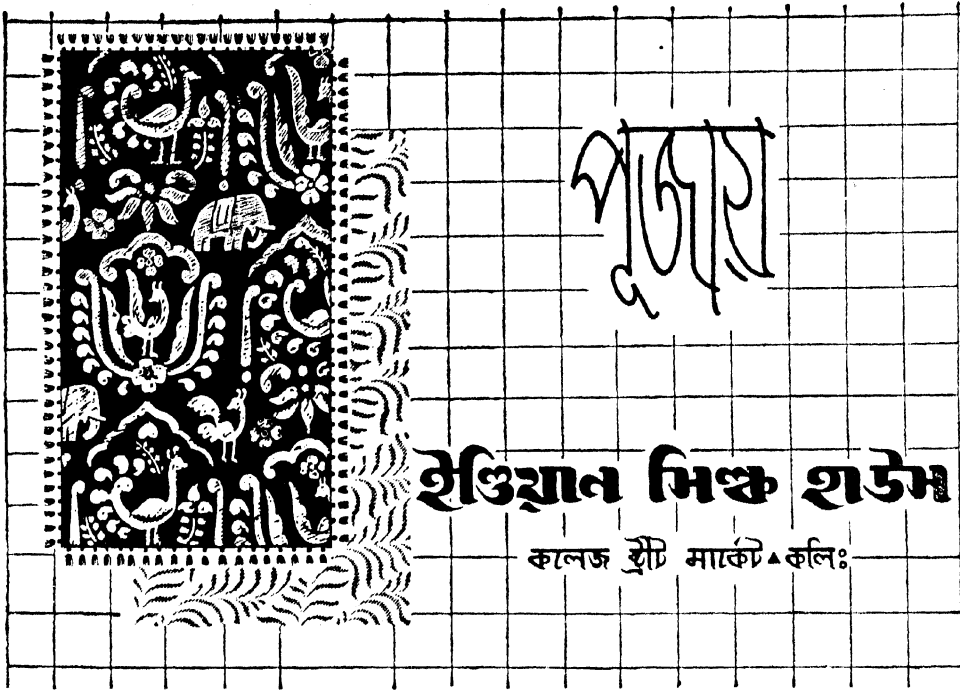 পূজায়
ইণ্ডিয়ান সিল্ক হাউস
কলেজ ষ্ট্রীট মার্কেট▲কলিঃ